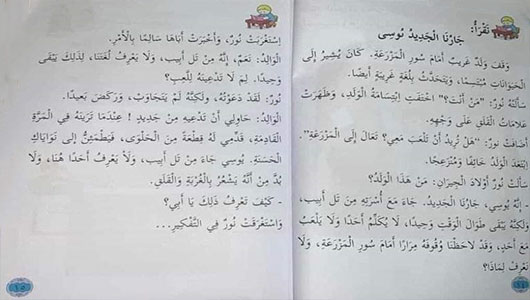 نَقْرَأُ:
جَارُنَا الْجَدِيدُ يُوسِي
وَقَفَ وَلَدٌ غَرِيبٌ أَمَامَ سُورِ الْمَزْرَعَةِ. كَانَ يُشِيرُ إِلَى
الْحَيَوَانَاتِ مُبْتَسِمًا، وَيَتَحَدَّثُ بِلُغَةٍ غَرِيبَةٍ أَيْضًا.
سَأَلَتْهُ نُورٌ: "مَنْ أَنْتَ؟" اخْتَفَتِ ابْتِسَامَةُ الْوَلَدِ، وَظَهَرَتْ
عَلَامَاتُ الْقَلَقِ عَلَى وَجْهِهِ.
أَضَافَتْ نُورٌ: "هَلْ تُرِيدُ أَنْ تَلْعَبَ مَعِي؟ تَعَالَ إِلَى الْمَزْرَعَةِ".
ابْتَعَدَ الْوَلَدُ خَائِفًا وَمُنْزَعِجًا.
سَأَلَتْ نُورٌ أَوْلَادَ الْجِيرَانِ: مَنْ هَذَا الْوَلَدُ؟
- إِنَّهُ يُوسِي، جَارُنَا الْجَدِيدُ. جَاءَ مَعَ أُسْرَتِهِ مِنْ تَل أَبِيب،
وَلَكِنَّهُ يَبْقَى طَوَالَ الْوَقْتِ وَحِيدًا، لَا يُكَلِّمُ أَحَدًا وَلَا يَلْعَبُ
مَعَ أَحَدٍ، وَقَدْ لَاحَظْنَا وُقُوفَهُ مِرَارًا أَمَامَ سُورِ الْمَزْرَعَةِ، وَلَا
نَعْرِفُ لِمَاذَا؟
اِسْتَغْرَبَتْ نُورٌ، وَأَخْبَرَتْ أَبَاهَا سَالِمًا بِالْأَمْرِ.
الْوَالِدُ: نَعَمْ، إِنَّهُ مِنْ تَل أَبِيب، وَلَا يَعْرِفُ لُغَتَنَا، لِذَلِكَ يَبْقَى
وَحِيدًا. لِمَ لَا تَدْعِينَهُ لِلَّعِبِ؟
نُورٌ: لَقَدْ دَعَوْتُهُ، وَلَكِنَّهُ لَمْ يَتَجَاوَبْ، وَرَكَضَ بَعِيدًا.
الْوَالِدُ: حَاوِلِي أَنْ تَدْعِيهِ مِنْ جَدِيدٍ! عِنْدَمَا تَرَيْنَهُ فِي الْمَرَّةِ
الْقَادِمَةِ، قَدِّمِي لَهُ قِطْعَةً مِنَ الْحَلْوَى، فَيَطْمَئِنَّ إِلَى نَوَايَاكِ
الْحَسَنَةِ. يُوسِي جَاءَ مِنْ تَل أَبِيب، وَلَا يَعْرِفُ أَحَدًا هُنَا، وَلَا
بُدَّ مِنْ أَنَّهُ يَشْعُرُ بِالْغُرْبَةِ وَالْقَلَقِ.
- كَيْفَ تَعْرِفُ ذَلِكَ يَا أَبِي؟
وَاسْتَغْرَقَتْ نُورٌ فِي التَّفْكِيرِ...
١٥